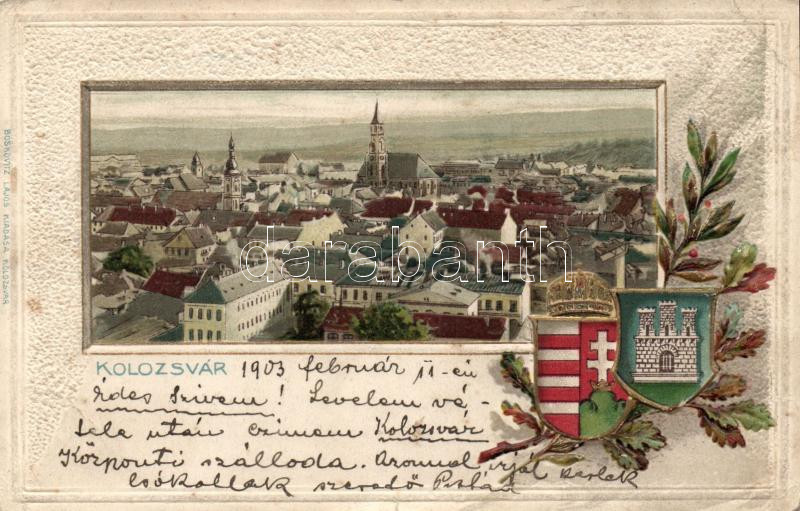 BOSKOVITZ LAJOS KIADÁSA, KOLOZSVÁR.
darabanth
KOLOZSVÁR 1903 február 11-én
Édes Szivem! Levelem vé-
tele után czimem Kolozsvár
Központi szálloda. Azonnal irjál kérlek
Csókollak szerető Pistád